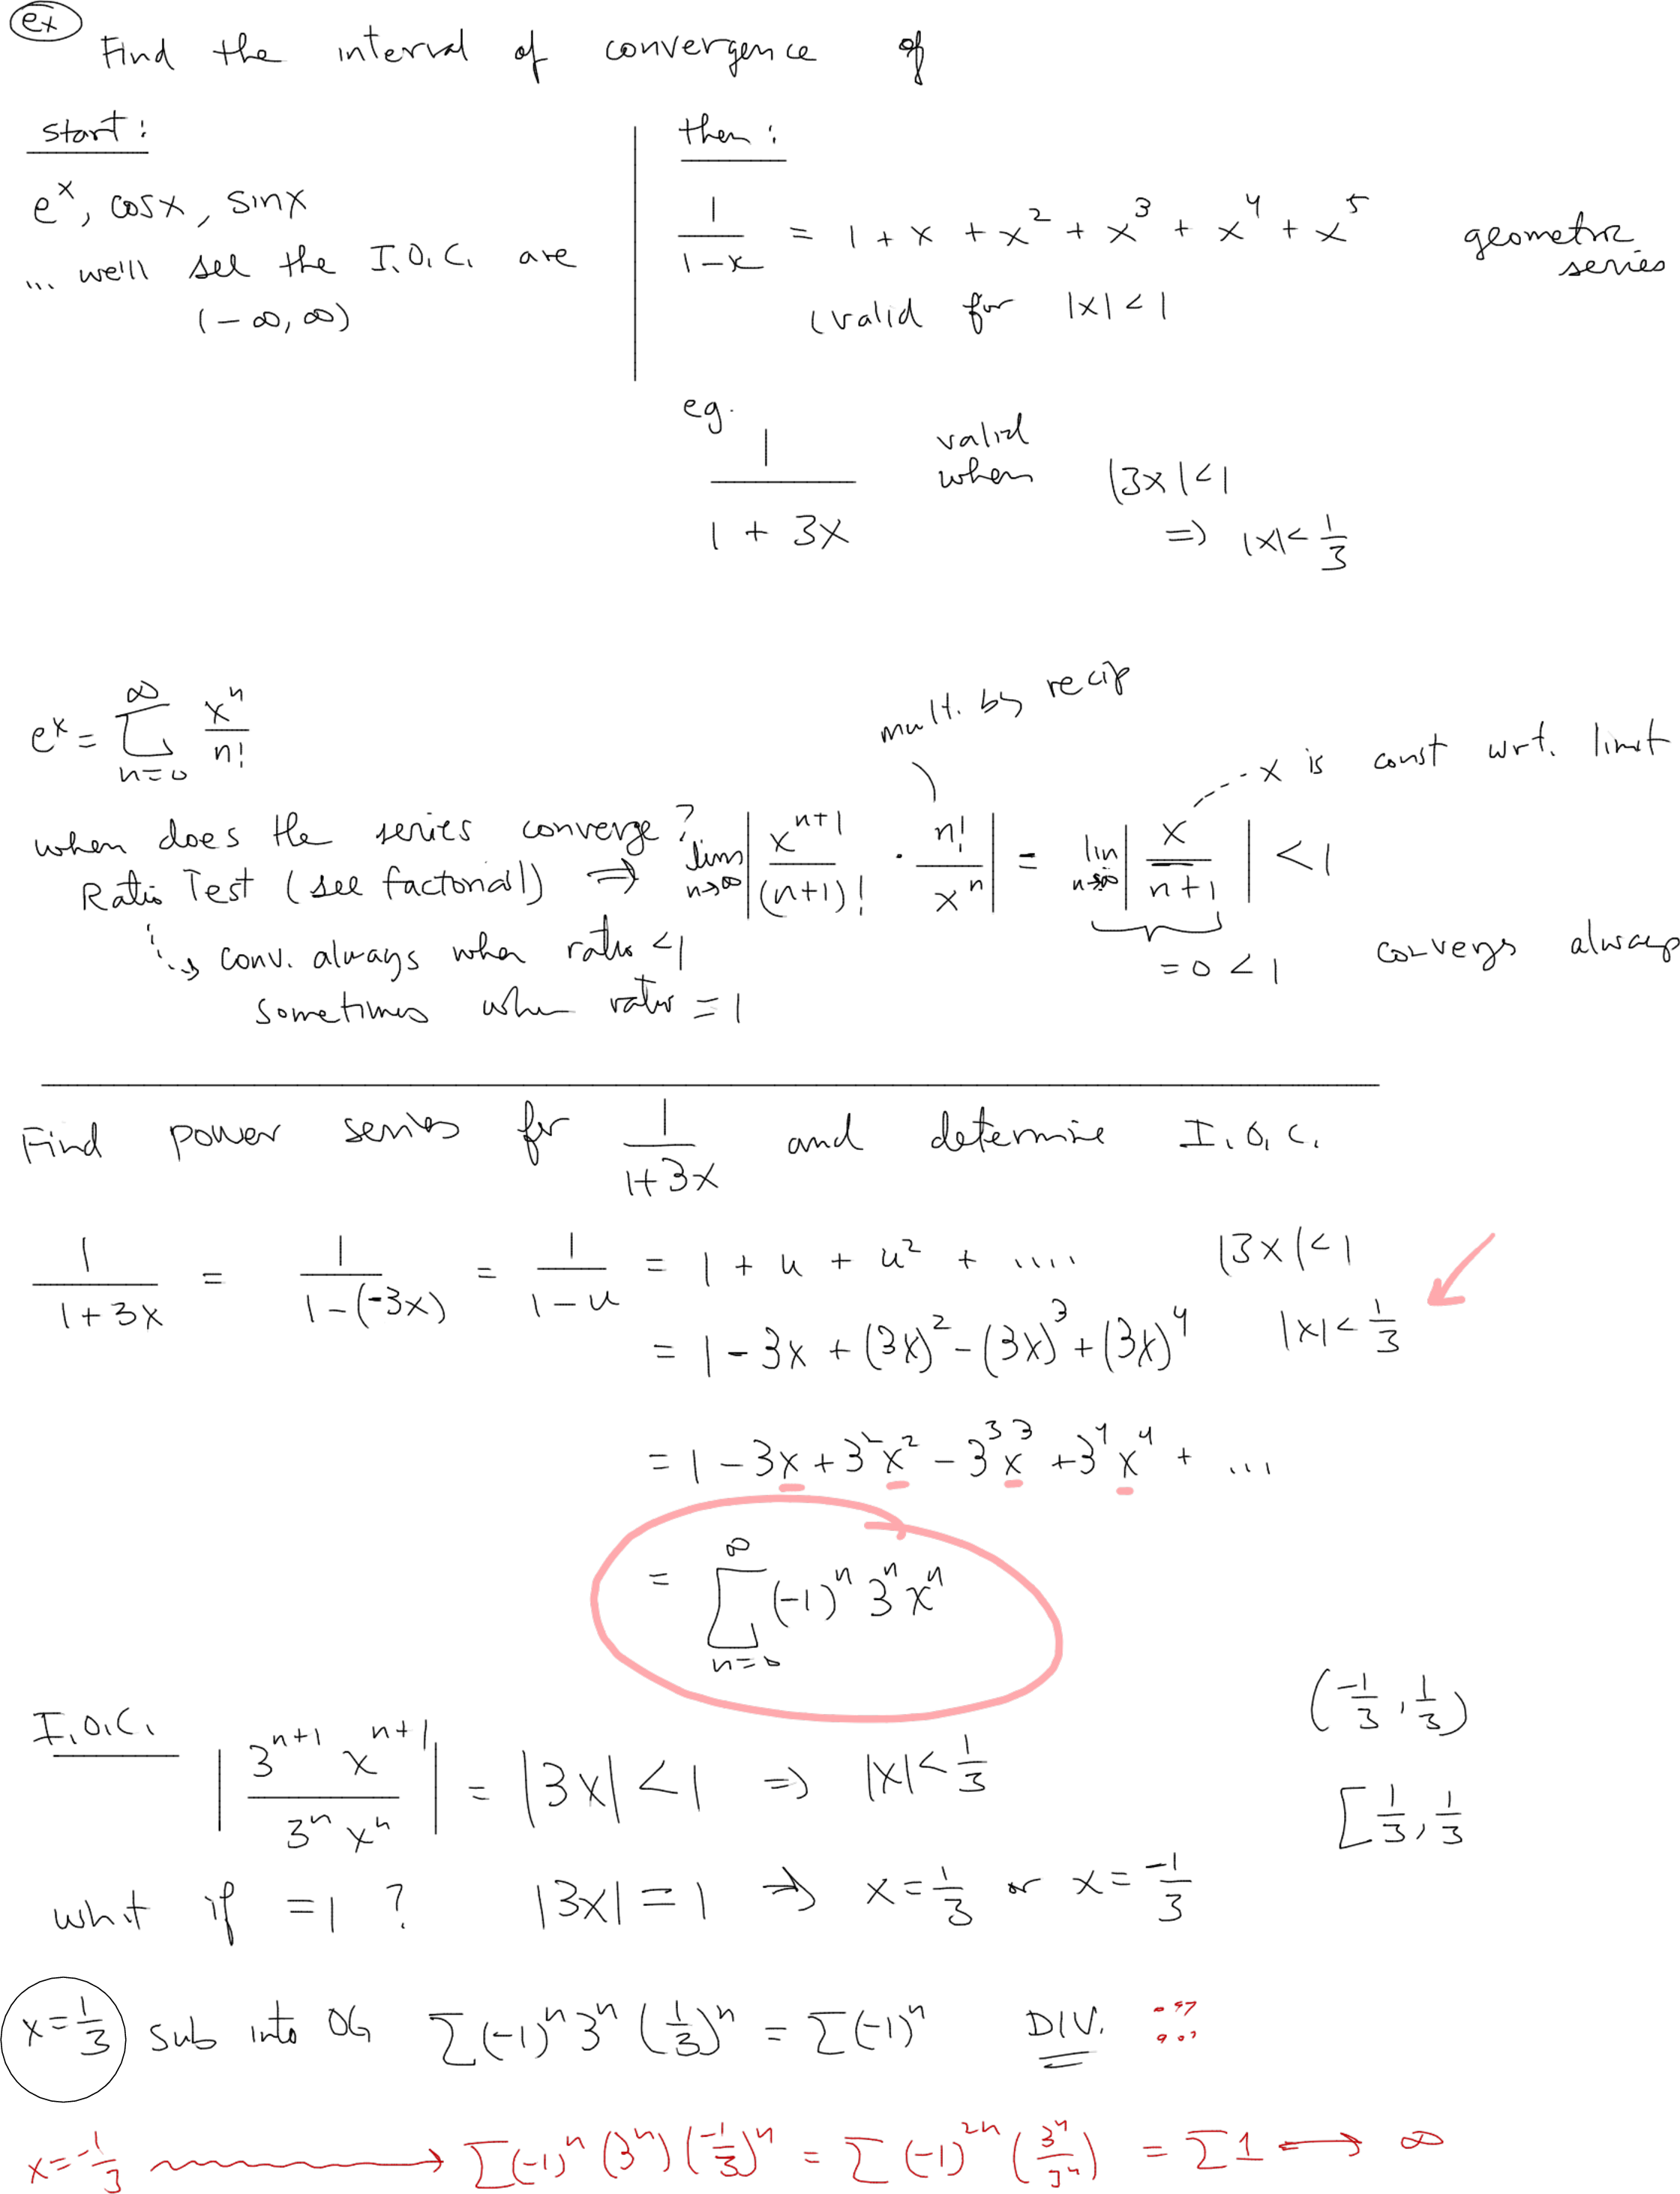 ex Find the interval of convergence of
start:
e^x, cosx, sinx
... we'll see the I.O.C. are
(-∞, ∞)
then:
1/(1-x) = 1 + x + x^2 + x^3 + x^4 + x^5 geometric series
(valid for |x| < 1
eg. 1/(1 + 3x) valid when |3x| < 1
=> |x| < 1/3
mult. by recip
e^x = ∑_{n=0}^{∞} x^n/n!
x is const wrt. limit
when does the series converge?
Ratio Test (see factorial) => lim_{n→∞} | x^{n+1}/(n+1)! · n!/x^n | = lim_{n→∞} | x/(n+1) | < 1
conv. always when ratio < 1
= 0 < 1 converges always
sometimes when ratio = 1
Find power series for 1/(1+3x) and determine I.O.C.
1/(1+3x) = 1/(1-(-3x)) = 1/(1-u) = 1 + u + u^2 + .... |3x| < 1
= 1 - 3x + (3x)^2 - (3x)^3 + (3x)^4 |x| < 1/3
= 1 - 3x + 3^2 x^2 - 3^3 x^3 + 3^4 x^4 + ...
= ∑_{n=0}^{∞} (-1)^n 3^n x^n
I.O.C.
| 3^{n+1} x^{n+1} / 3^n x^n | = |3x| < 1 => |x| < 1/3
(-1/3, 1/3)
[1/3, 1/3
what if = 1 ? |3x| = 1 => x = 1/3 or x = -1/3
x = 1/3 sub into OG ∑(-1)^n 3^n (1/3)^n = ∑(-1)^n DIV.
x = -1/3 → ∑(-1)^n (3^n) (-1/3)^n = ∑ (-1)^{2n} (3^n/3^n) = ∑ 1 → ∞